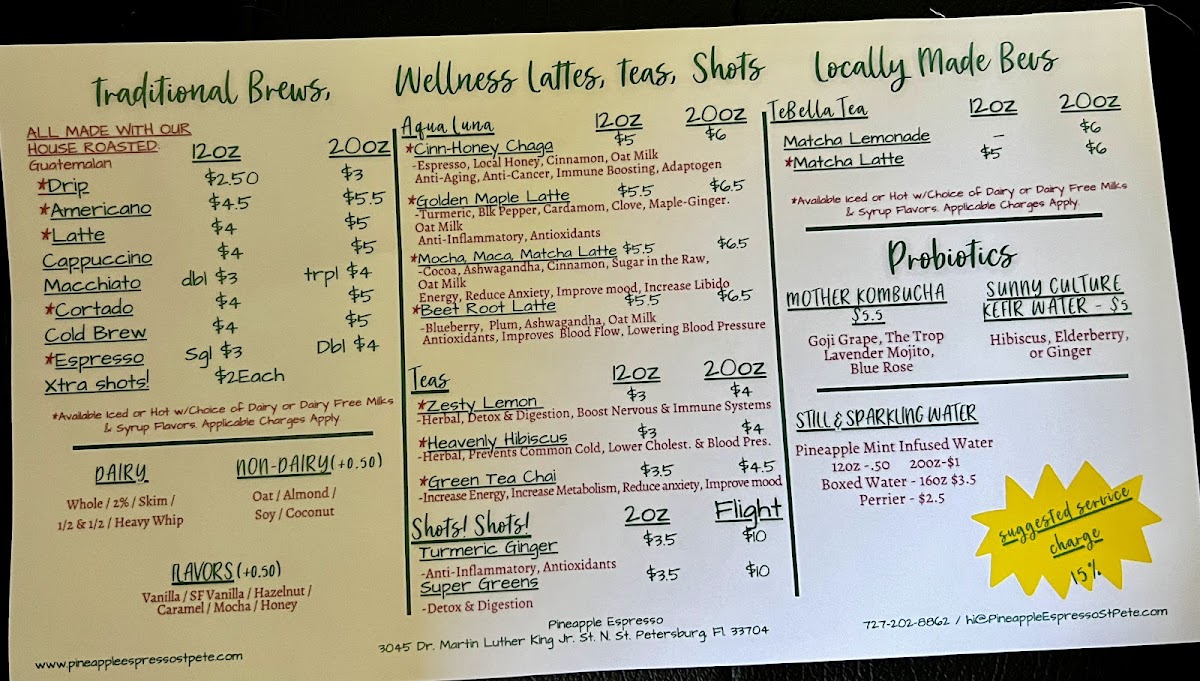 Traditional Brews,
ALL MADE WITH OUR
HOUSE ROASTED:
Guatemalan
12oz 20oz
*Drip $2.50 $3
*Americano $4.5 $5.5
*Latte $4 $5
Cappuccino $4 $5
Macchiato dbl $3 trpl $4
*Cortado $4 $5
Cold Brew $4 $5
*Espresso Sgl $3 Dbl $4
Xtra shots! $2Each
*Available Iced or Hot w/Choice of Dairy or Dairy Free Milks
& Syrup Flavors. Applicable Charges Apply
DAIRY
Whole / 2% / Skim /
1/2 & 1/2 / Heavy Whip
NON-DAIRY (+0.50)
Oat / Almond /
Soy / Coconut
FLAVORS (+0.50)
Vanilla / SF Vanilla / Hazelnut /
Caramel / Mocha / Honey
Wellness Lattes, Teas, Shots
Aqua Luna 12oz 20oz
*Cinn-Honey Chaga $5 $6
-Espresso, Local Honey, Cinnamon, Oat Milk
Anti-Aging, Anti-Cancer, Immune Boosting, Adaptogen
*Golden Maple Latte $5.5 $6.5
-Turmeric, Blk Pepper, Cardamom, Clove, Maple-Ginger.
Oat Milk
Anti-Inflammatory, Antioxidants
*Mocha, Maca, Matcha Latte $5.5 $6.5
-Cocoa, Ashwagandha, Cinnamon, Sugar in the Raw,
Oat Milk
Energy, Reduce Anxiety, Improve mood, Increase Libido
*Beet Root Latte $5.5 $6.5
-Blueberry, Plum, Ashwagandha, Oat Milk
Antioxidants, Improves Blood Flow, Lowering Blood Pressure
Teas 12oz 20oz
*Zesty Lemon $3 $4
-Herbal, Detox & Digestion, Boost Nervous & Immune Systems
*Heavenly Hibiscus $3 $4
-Herbal, Prevents Common Cold, Lower Cholest. & Blood Pres.
*Green Tea Chai $3.5 $4.5
-Increase Energy, Increase Metabolism, Reduce anxiety, Improve mood
Shots! Shots! 2oz Flight
Turmeric Ginger $3.5 $10
-Anti-Inflammatory, Antioxidants
Super Greens $3.5 $10
-Detox & Digestion
Locally Made Bevs
TeBella Tea 12oz 20oz
Matcha Lemonade - $6
*Matcha Latte $5 $6
*Available Iced or Hot w/Choice of Dairy or Dairy Free Milks
& Syrup Flavors. Applicable Charges Apply.
Probiotics
MOTHER KOMBUCHA
$5.5
Goji Grape, The Trop
Lavender Mojito,
Blue Rose
SUNNY CULTURE
KEFIR WATER - $5
Hibiscus, Elderberry,
or Ginger
STILL & SPARKLING WATER
Pineapple Mint Infused Water
12oz -.50 20oz-$1
Boxed Water - 16oz $3.5
Perrier - $2.5
suggested service
charge
15%
www.pineappleespressostpete.com
Pineapple Espresso
3045 Dr. Martin Luther King Jr. St. N. St. Petersburg, Fl 33704
727-202-8862 / hi@PineappleEspressoStPete.com